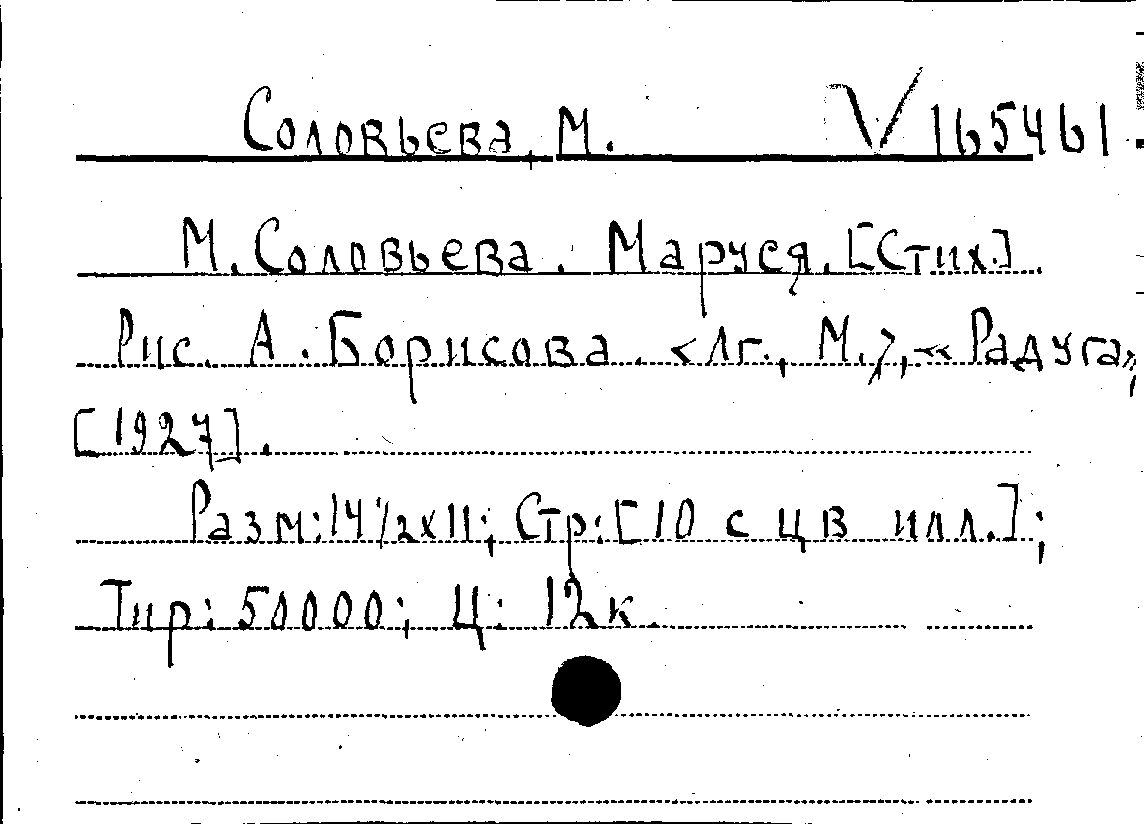 Соловьева, М. V 165461.
М. Соловьева. Маруся. [Стих.]
Рис. А. Борисова. <Лг., М.>, «Радуга»,
[1927].
Разм: 14 1/2 x 11; Стр: [10 с цв илл.];
Тир: 50000; Ц: 12к.